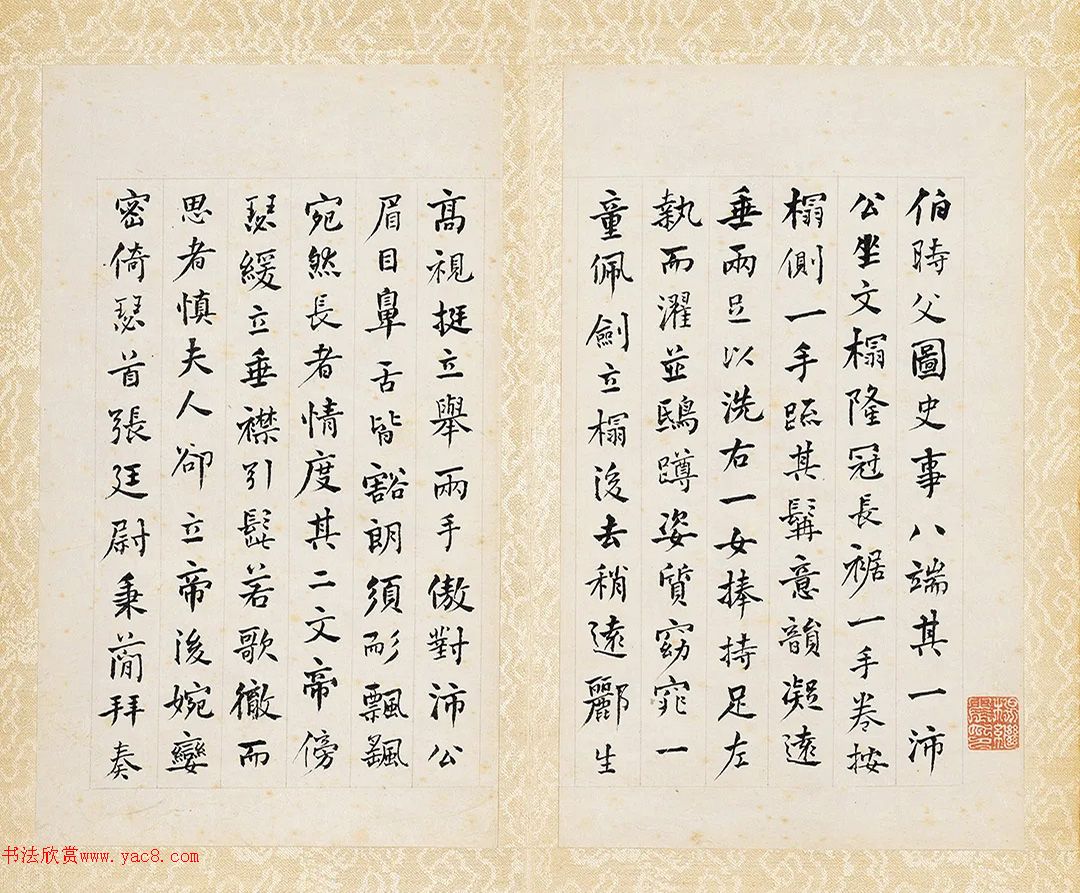 伯時父圖史事八端其一沛
公坐文榻隆冠長裾一手卷按
榻側一手䟽其髯意韻凝遠
垂兩足以洗右一女捧持足左
執而濯並鴟蹲姿質窈窕一
童佩劍立榻後去稍遠酈生
高視挺立舉兩手傲對沛公
眉目鼻舌皆豁朗須形飄飄
宛然長者情度其二文帝傍
瑟緩立垂襟引髭若歌徹而
思者慎夫人卻立帝後婉孌
密倚瑟首張廷尉秉簡拜奏
书法欣赏www.yac8.com